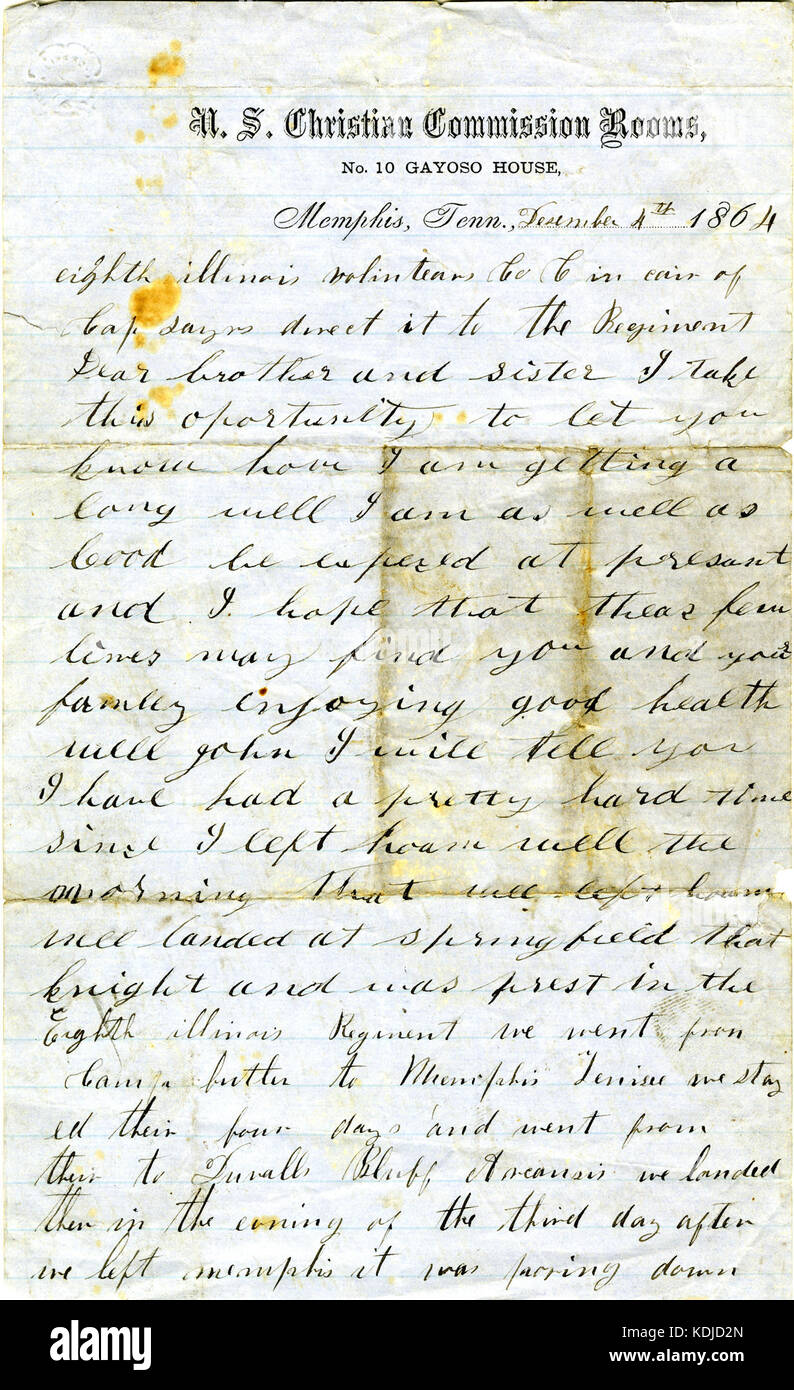 U. S. Christian Commission Rooms,
No. 10 GAYOSO HOUSE,
Memphis, Tenn., Desember 4th 1864
eighth illinois volintears Co C in cair of
Cap sayrs direct it to the Regiment
Dear brother and sister I take
this oportunity to let you
know how I am getting a
long well I am as well as
Cood be expezed at presant
and I hope that theas few
lines may find you and your
famley enjoying good health
well john I will tell you
I have had a pretty hard time
sinze I left hoam well the
morning that we left hoam
we landed at springfield that
knight and was prest in the
Eighth illinois Regiment we went from
Camp butler to Memphis Tenisee we stay
ed their four days and went from
their to Duvalls Bluff Arcansis we landed
ther in the evning of the third day after
we left memphis it was poring down
alamy
Image ID: KDJD2N
www.alamy.com